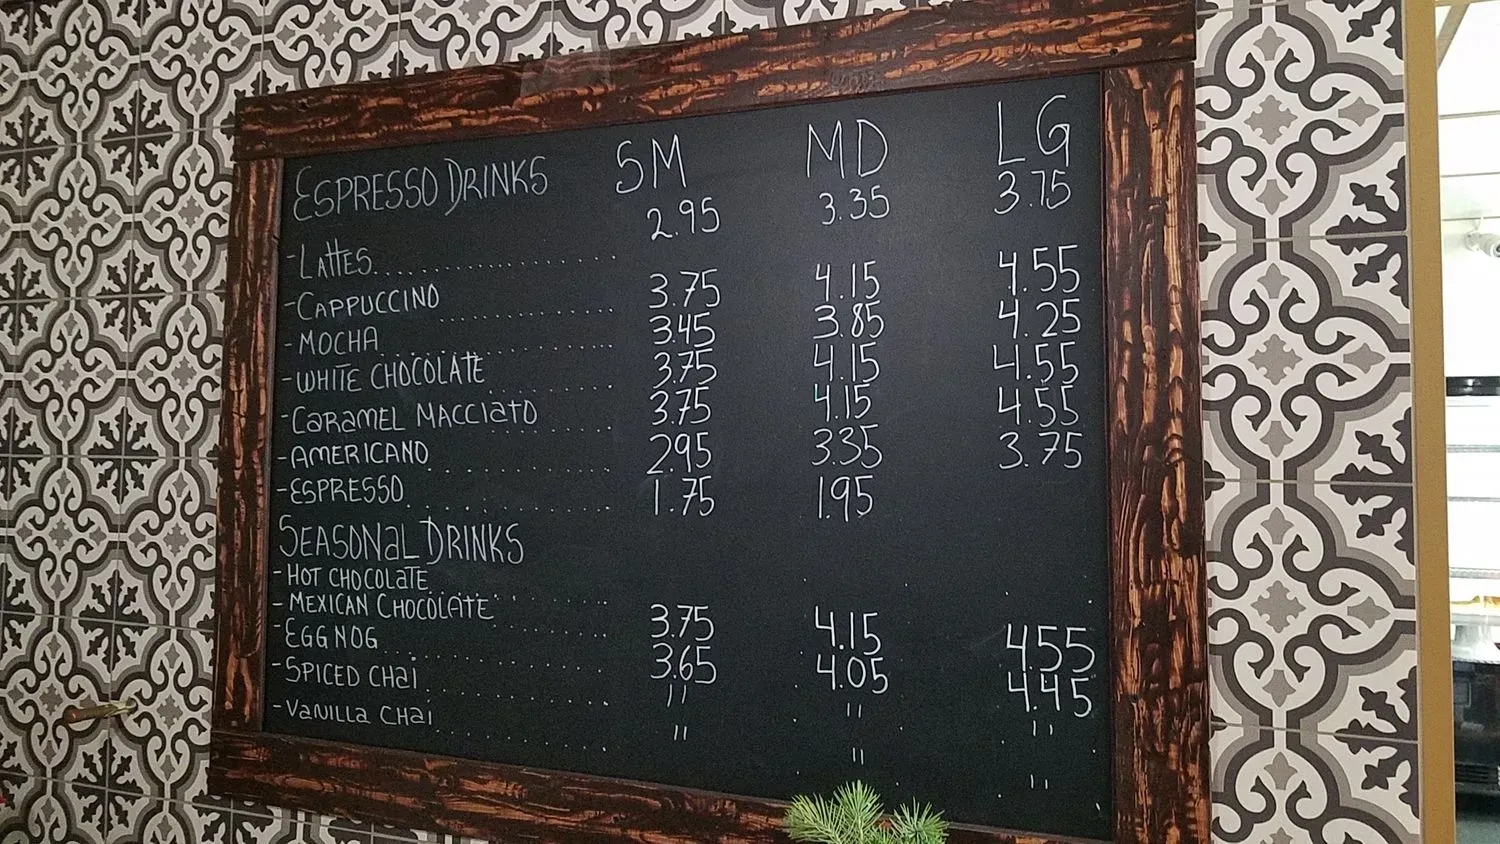 ESPRESSO DRINKS SM MD LG
-LATTES 2.95 3.35 3.75
-CAPPUCCINO 3.75 4.15 4.55
-MOCHA 3.45 3.85 4.25
-WHITE CHOCOLATE 3.75 4.15 4.55
-CARAMEL MACCIATO 3.75 4.15 4.55
-AMERICANO 2.95 3.35 3.75
-ESPRESSO 1.75 1.95
SEASONAL DRINKS
-HOT CHOCOLATE
-MEXICAN CHOCOLATE 3.75 4.15 4.55
-EGGNOG 3.65 4.05 4.45
-SPICED CHAI " " "
-VANILLA CHAI " " "